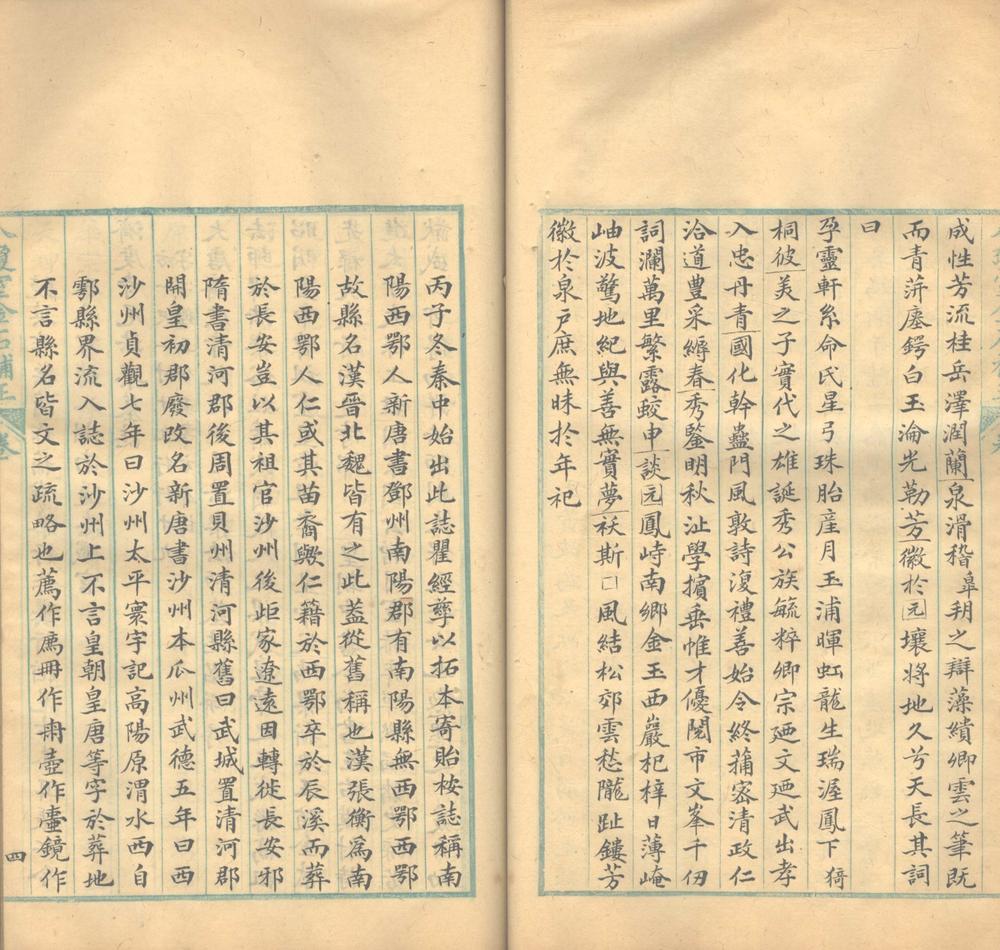 成性芳流桂岳澤潤蘭泉滑稽皐朔之辯藻繢卿雲之筆既
而青萍墜鍔白玉淪光勒芳徽於元壤將地久兮天長其詞
曰
孕靈軒系命氏星弓珠胎産月玉浦暉虹龍生瑞渥鳳下猗
桐彼美之子實代之雄誕秀公族毓粹卿宗廼文廼武出孝
入忠丹青國化幹蠱門風敦詩復禮善始令終蒱宻清政仁
洽道豊采縟春秀鑒明秋沚學擯垂帷才優閱市文峯千仞
詞瀾萬里繁露蛟申談元鳳峙南鄉金玉西巖杞梓日薄崦
岫波驚地紀與善無實夢袄斯□風結松郊雲愁隴趾鏤芳
徽於泉戸庶無昧於年祀
丙子冬秦中始出此誌瞿經孳以拓本寄貽桉誌稱南
陽西鄂人新唐書鄧州南陽郡有南陽縣無西鄂西鄂
故縣名漢晉北魏皆有之此葢從舊稱也漢張衡爲南
陽西鄂人仁或其苗裔歟仁籍於西鄂卒於辰溪而葬
於長安豈以其祖官沙州後歫家遼遠因轉徙長安邪
隋書清河郡後周置貝州清河縣舊曰武城置清河郡
開皇初郡廢改名新唐書沙州本瓜州武德五年曰西
沙州貞觀七年曰沙州太平寰宇記高陽原渭水西自
鄠縣界流入誌於沙州上不言皇朝皇唐等字於葬地
不言縣名皆文之疏略也薦作廌冊作𠕋壺作壷鏡作
四